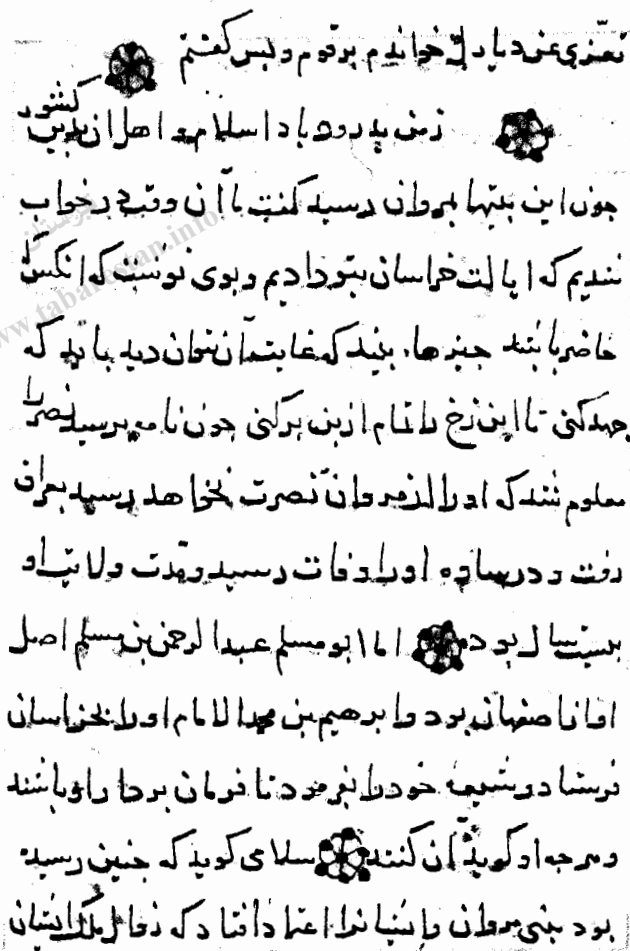 تعزی عن دیارک خواندم بر قوم و بس کفتم
زمن پدرود باد اسلام و اهل ان بدین کشور
جون این بیتها بمروان رسید کفت ما آن وقت در خواب
نشدیم که ایالت خراسان بتو دادیم و بوی نوشت که انکس کا
حاضر باشد جیزها بیند که غایب آن نتوان دید باید که
جهد کنی تا این زخ را تمام از بن برکنی جون نامه برسید نصر را
معلوم شد که او را از مروان نصرت نخواهد رسید بعراق
رفت و در ساوه او را وفات رسید و مدت ولایت او
بیست سال بود اما ابو مسلم عبد الرحمن بن مسلم اصل
او از اصفهان بود و ابرهیم بن محمد الامام او را بخراسان
فرستاد و شیعه خود را بفرمود تا فرمان بردار او باشند
و هرجه او کوید آن کنند سلامی کوید که جنین رسیده
بود بنی مروان را و ایشانرا اعتماد افتاد که زوال ملک ایشان